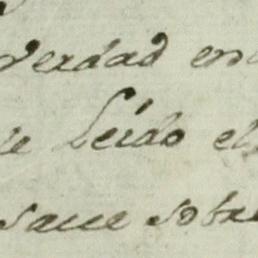 verdad en
te Leido el
saue sobre